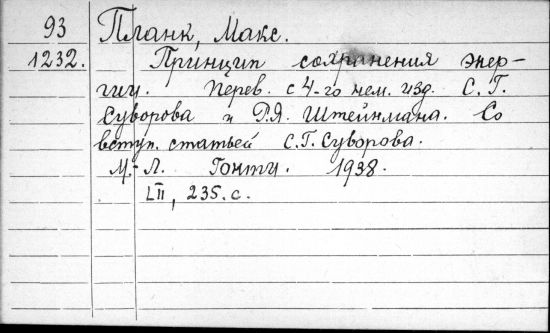 93 Планк, Макс.
1232. Принцип сохранения энер-
гии. Перев. с 4-го нем. изд. С.Г.
Суворова и Р.Я. Штейнмана. Со
вступ. статьей С.Г. Суворова.
М.-Л. Гонти. 1938.
LII, 235. с.